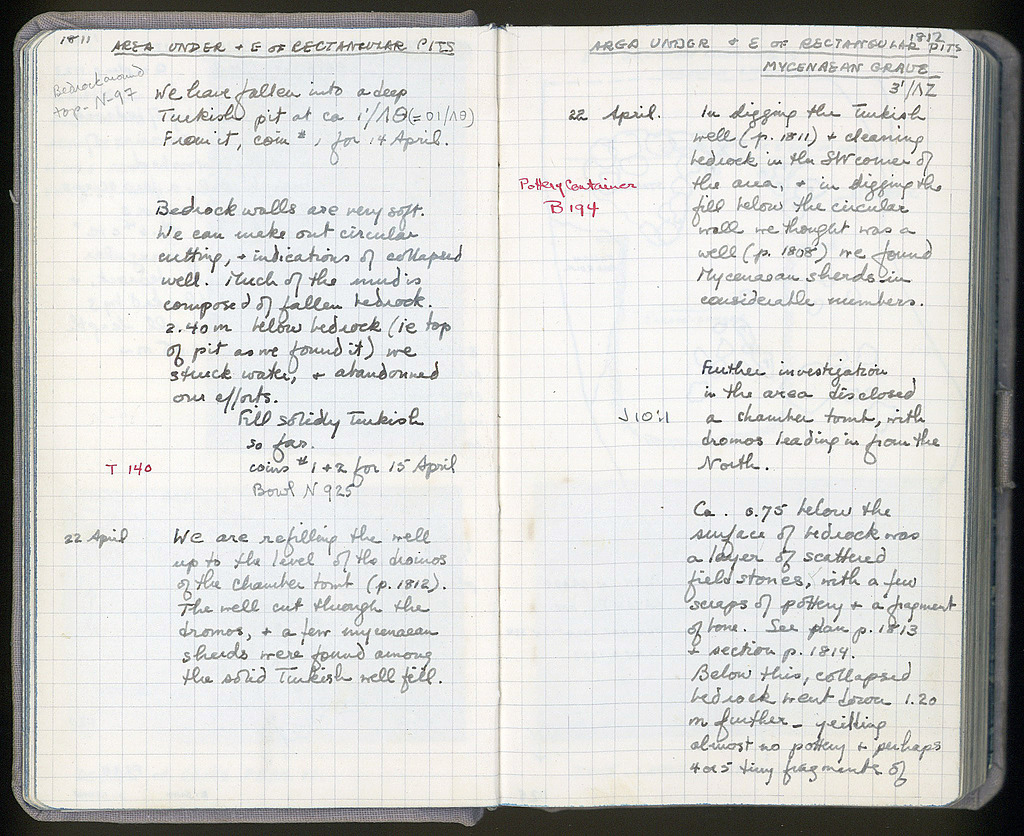 1811
AREA UNDER + E OF RECTANGULAR PITS
Bedrock around
top - N-97
We have fallen into a deep
Turkish pit at ca 1'/ΛΘ (= 01/ΛΘ)
From it, coin #1 for 14 April.
Bedrock walls are very soft.
We can make out circular
cutting, + indications of collapsed
well. Much of the mud is
composed of fallen bedrock.
2.40 m below bedrock (ie top
of pit as we found it) we
struck water, + abandonned
our efforts.
Fill solidly Turkish
so far.
T 140
coins #1+2 for 15 April
Bowl N 925
22 April
We are refilling the well
up to the level of the dromos
of the chamber tomb (p. 1812).
The well cut through the
dromos, + a few mycenaean
sherds were found among
the solid Turkish well fill.
1812
AREA UNDER + E OF RECTANGULAR PITS
MYCENAEAN GRAVE
3'/ΛΖ
22 April.
In digging the Turkish
well (p. 1811) + cleaning
bedrock in the SW corner of
Pottery Container
B 194
the area, + in digging the
fill below the circular
wall we thought was a
well (p. 1808) we found
Mycenaean sherds in
considerable numbers.
Further investigation
in the area disclosed
J 10:1
a chamber tomb, with
dromos leading in from the
North.
Ca. 0.75 below the
surface of bedrock was
a layer of scattered
field stones, with a few
scraps of pottery + a fragment
of bone. See plan p. 1813
+ section p. 1814.
Below this, collapsed
bedrock went down 1.20
m further - yeilding
almost no pottery + perhaps
4 or 5 tiny fragments of